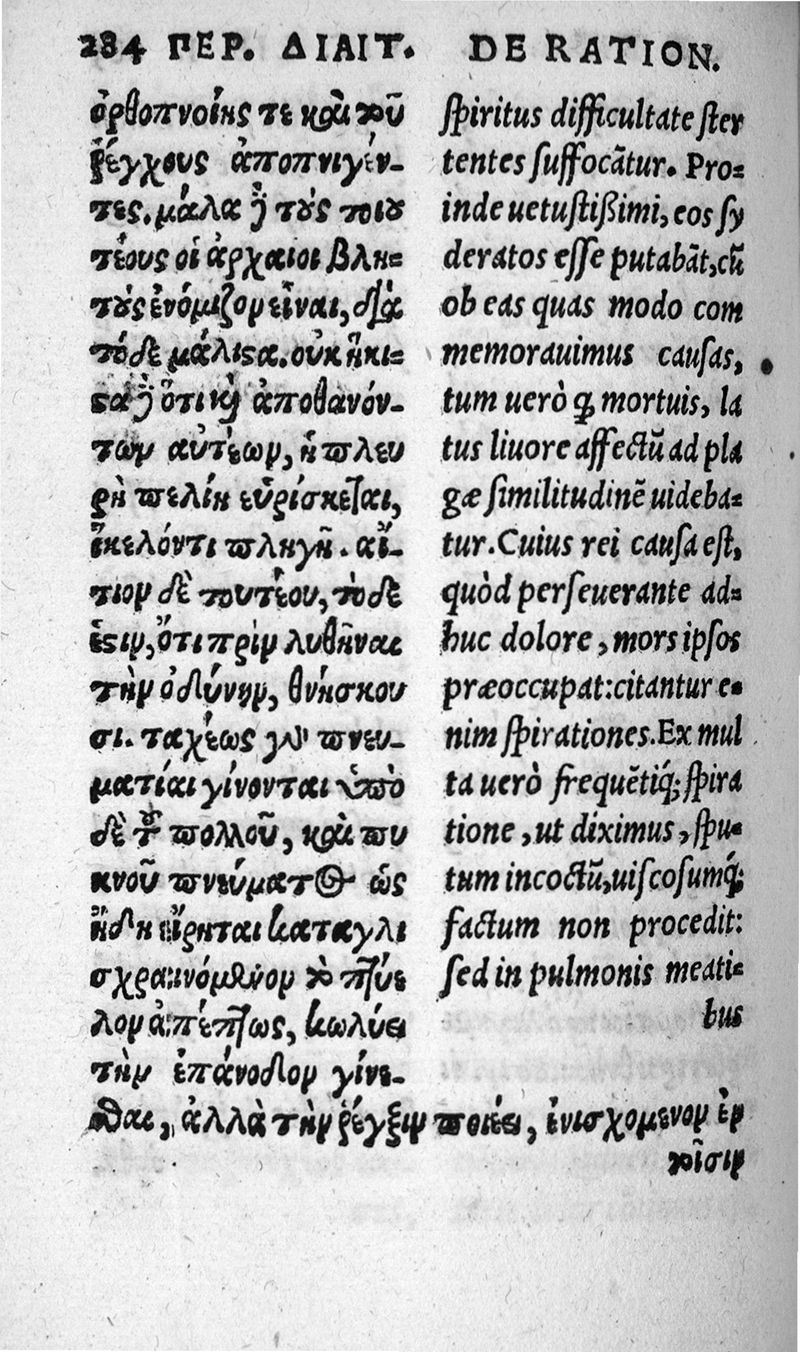 284 ΠΕΡ. ΔΙΑΙΤ. DE RATION.
ὀρθοπνοίης τε καὶ τοῦ
ῥέγχους ἀποπνιγέν-
τες. μάλα δὲ τοὺς τοιου
τέους οἱ ἀρχαῖοι βλη-
τοὺς ἐνόμιζον εἶναι, διὰ
τόδε μάλιστα. οὐκ ἥκι-
στα δὲ ὅτι καὶ ἀποθανόν-
των αὐτέων, ἡ πλευ
ρὴ πελίη εὑρίσκεται,
ἴκελόν τι πληγῇ. αἴ-
τιον δὲ τουτέου, τόδε
ἐστιν, ὅτι πρὶν λυθῆναι
τὴν ὀδύνην, θνήσκου
σι. ταχέως γὰρ πνευ-
ματίαι γίνονται ὑπὸ
δὲ τοῦ πολλοῦ, καὶ πυ
κνοῦ πνεύματος ὡς
ἤδη εἴρηται καταγλι
σχραινόμενον τὸ πτύε
λον ἀπέπτως, κωλύει
τὴν ἐπάνοδον γίνε-
σθαι, ἀλλὰ τὴν ῥέγξιν ποιέει, ἐνισχομενον ἐν
τοῖσιν
spiritus difficultate ster
tentes suffocãtur. Pro-
inde uetustißimi, eos sy
deratos esse putabãt, cũ
ob eas quas modo com
memorauimus causas,
tum uerò ꝙ mortuis, la
tus liuore affectũ ad pla
gæ similitudinẽ uideba-
tur. Cuius rei causa est,
quòd perseuerante ad-
huc dolore, mors ipsos
præoccupat: citantur e-
nim spirationes. Ex mul
ta uerò frequẽtiq́; spira
tione, ut diximus, spu-
tum incoctũ, uiscosumq́;
factum non procedit:
sed in pulmonis meati-
bus